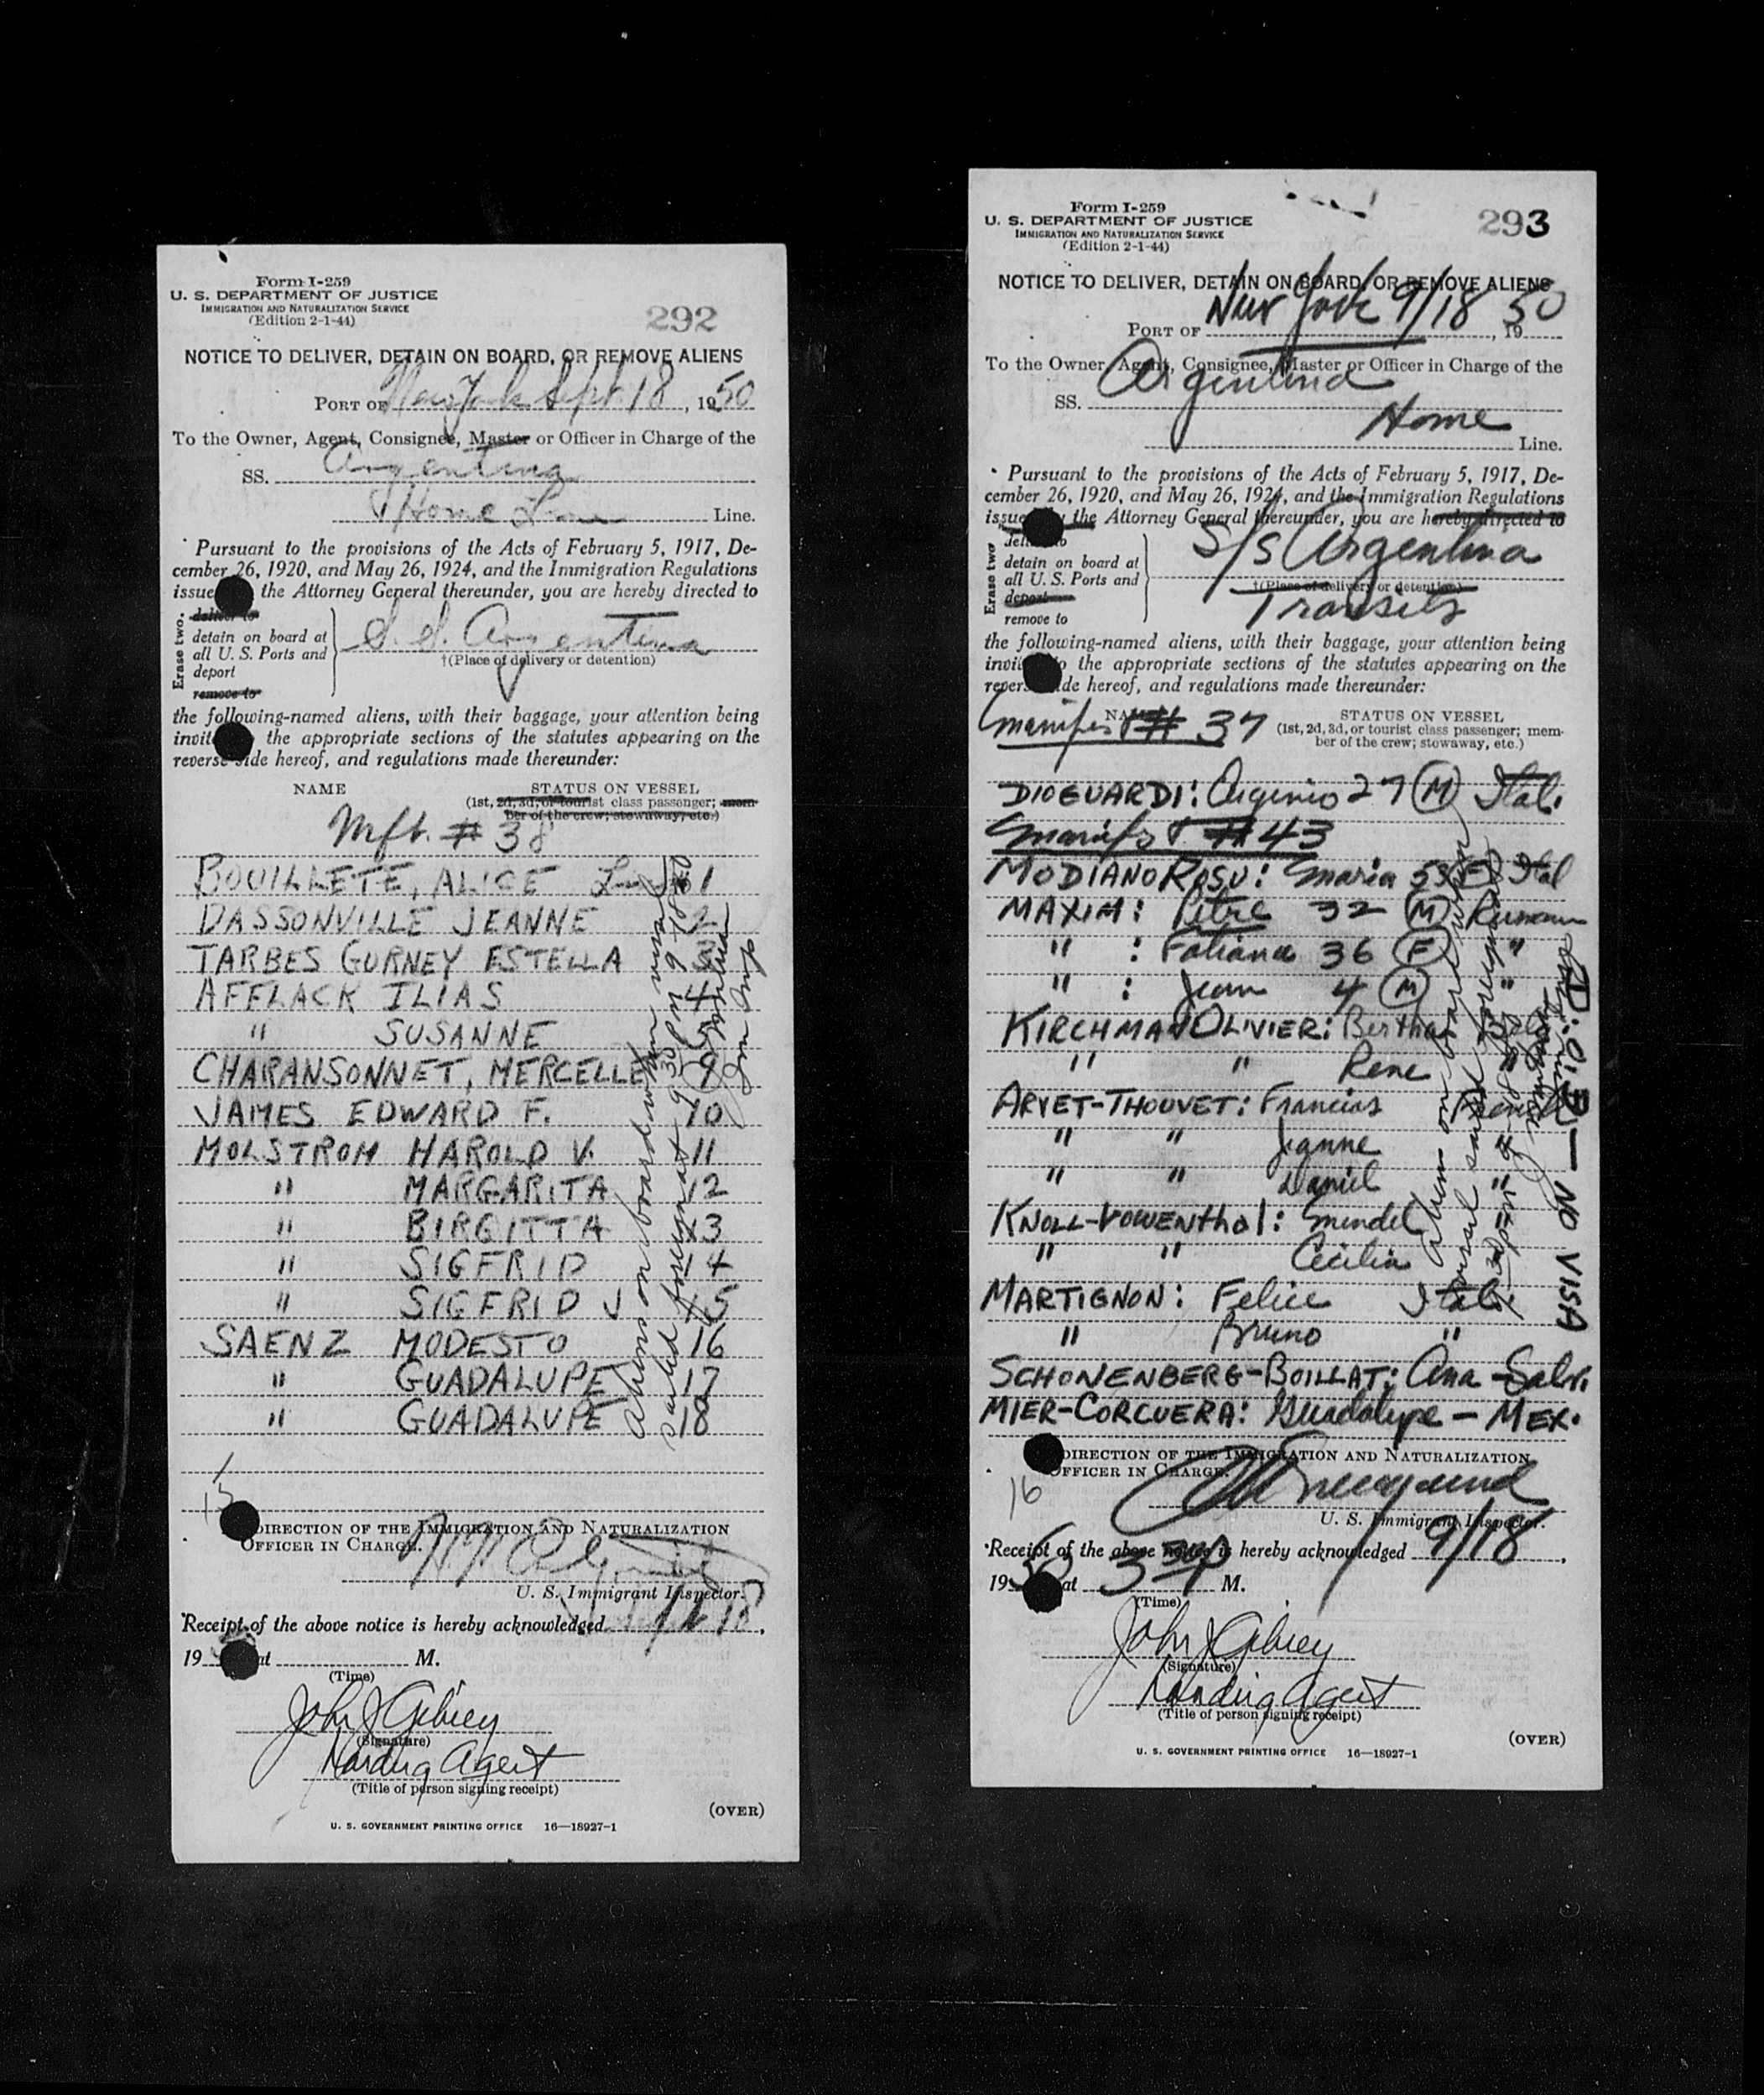 Form I-259
U. S. DEPARTMENT OF JUSTICE
IMMIGRATION AND NATURALIZATION SERVICE
(Edition 2-1-44)
292
NOTICE TO DELIVER, DETAIN ON BOARD, OR REMOVE ALIENS
PORT OF New York Sept. 18, 1950
To the Owner, Agent, Consignee, Master or Officer in Charge of the
SS. Argentina
Home Line Line.
Pursuant to the provisions of the Acts of February 5, 1917, De-
cember 26, 1920, and May 26, 1924, and the Immigration Regulations
issue the Attorney General thereunder, you are hereby directed to
Erase two.
deliver to
detain on board at
all U. S. Ports and
deport
remove to
S.S. Argentina
†(Place of delivery or detention)
the following-named aliens, with their baggage, your attention being
invit the appropriate sections of the statutes appearing on the
reverse side hereof, and regulations made thereunder:
NAME
STATUS ON VESSEL
(1st, 2d, 3d, or tourist class passenger; mem-
ber of the crew; stowaway, etc.)
Mft. # 38
BOUILLETE, ALICE Lin 1
DASSONVILLE JEANNE 2
TARBES GURNEY ESTELLA 3
AFFLACK ILIAS 4
" SUSANNE
CHARANSONNET, MERCELLE 9
JAMES EDWARD F. 10
MOLSTROM HAROLD V. 11
" MARGARITA 12
" BIRGITTA 13
" SIGFRID 14
" SIGFRID J 15
SAENZ MODESTO 16
" GUADALUPE 17
" GUADALUPE 18
Aliens on board when vessel
sailed foreign at 9 30 PM 9-18-50
Imm Insp
15
DIRECTION OF THE IMMIGRATION AND NATURALIZATION
OFFICER IN CHARGE.
U. S. Immigrant Inspector.
Receipt of the above notice is hereby acknowledged 18,
19 at M.
(Time)
John J Gibney
(Signature)
Landing Agent
(Title of person signing receipt)
(OVER)
U. S. GOVERNMENT PRINTING OFFICE 16—18927-1
Form I-259
U. S. DEPARTMENT OF JUSTICE
IMMIGRATION AND NATURALIZATION SERVICE
(Edition 2-1-44)
293
NOTICE TO DELIVER, DETAIN ON BOARD, OR REMOVE ALIENS
PORT OF New York 9/18, 19 50
To the Owner, Agent, Consignee, Master or Officer in Charge of the
SS. Argentina
Home Line.
Pursuant to the provisions of the Acts of February 5, 1917, De-
cember 26, 1920, and May 26, 1924, and the Immigration Regulations
issue the Attorney General thereunder, you are hereby directed to
Erase two
detain on board at
all U. S. Ports and
deport
remove to
S/S Argentina
†(Place of delivery or detention)
Transits
the following-named aliens, with their baggage, your attention being
invit the appropriate sections of the statutes appearing on the
reverse side hereof, and regulations made thereunder:
NAME
STATUS ON VESSEL
(1st, 2d, 3d, or tourist class passenger; mem-
ber of the crew; stowaway, etc.)
Manifest # 37
DIOGUARDI: Argenio 27 (M) Ital.
Manifest #43
MODIANO ROSU: Maria 53 (F) Ital
MAXIM: Petre 32 (M) Ruman
" : Fatiana 36 (F) "
" : Jean 4 (M) "
KIRCHMAN OLIVIER: Bertha
" " Rene
ARVET-THOUVET: Francius French
" " Jeanne "
" " Daniel "
KNOLL-LOWENTHAL: Mendel
" " Cecilia
MARTIGNON: Felice Ital.
" Bruno "
SCHONENBERG-BOILLAT: Ana - Salv.
MIER-CORCUERA: Guadalupe - MEX.
Aliens on board when
vessel sailed foreign at
NO VISA
16
DIRECTION OF THE IMMIGRATION AND NATURALIZATION
OFFICER IN CHARGE.
U. S. Immigrant Inspector.
Receipt of the above notice is hereby acknowledged 9/18,
1950 at 3 30 P M.
(Time)
John J Gibney
(Signature)
Landing Agent
(Title of person signing receipt)
(OVER)
U. S. GOVERNMENT PRINTING OFFICE 16—18927-1